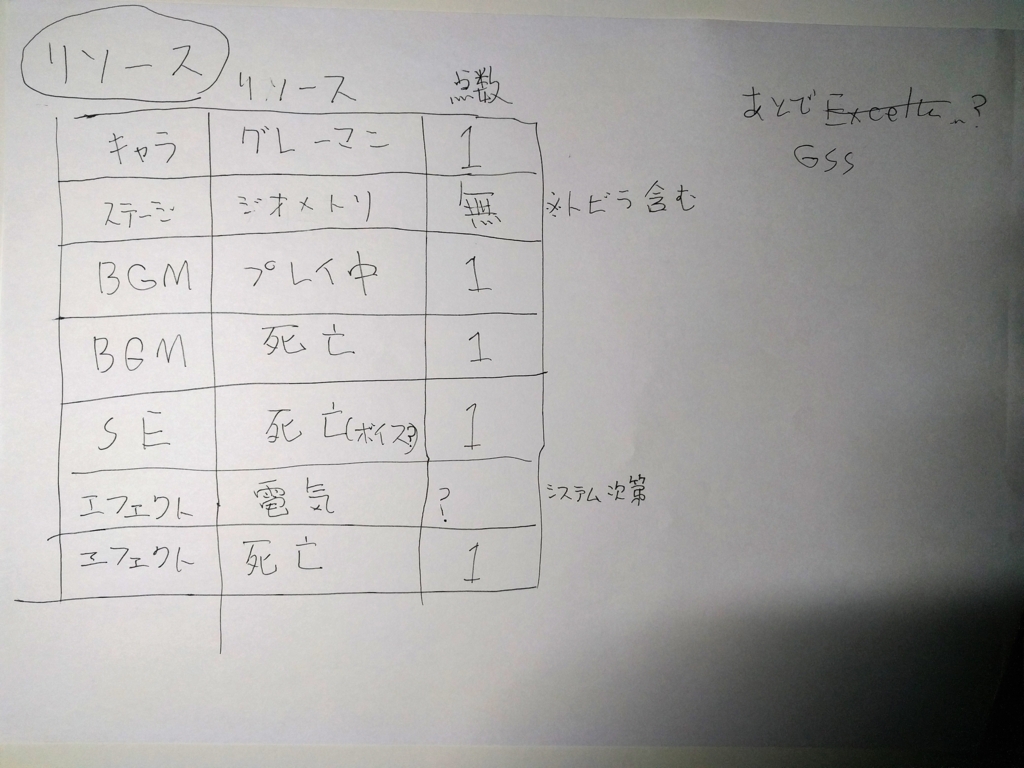 リソース
リソース 点数
あとでExcelに…?
GSS
キャラ グレーマン 1
ステージ ジオメトリ 無 ※トビラ含む
BGM プレイ中 1
BGM 死亡 1
SE 死亡(ボイス?) 1
エフェクト 電気 ? システム次第
エフェクト 死亡 1